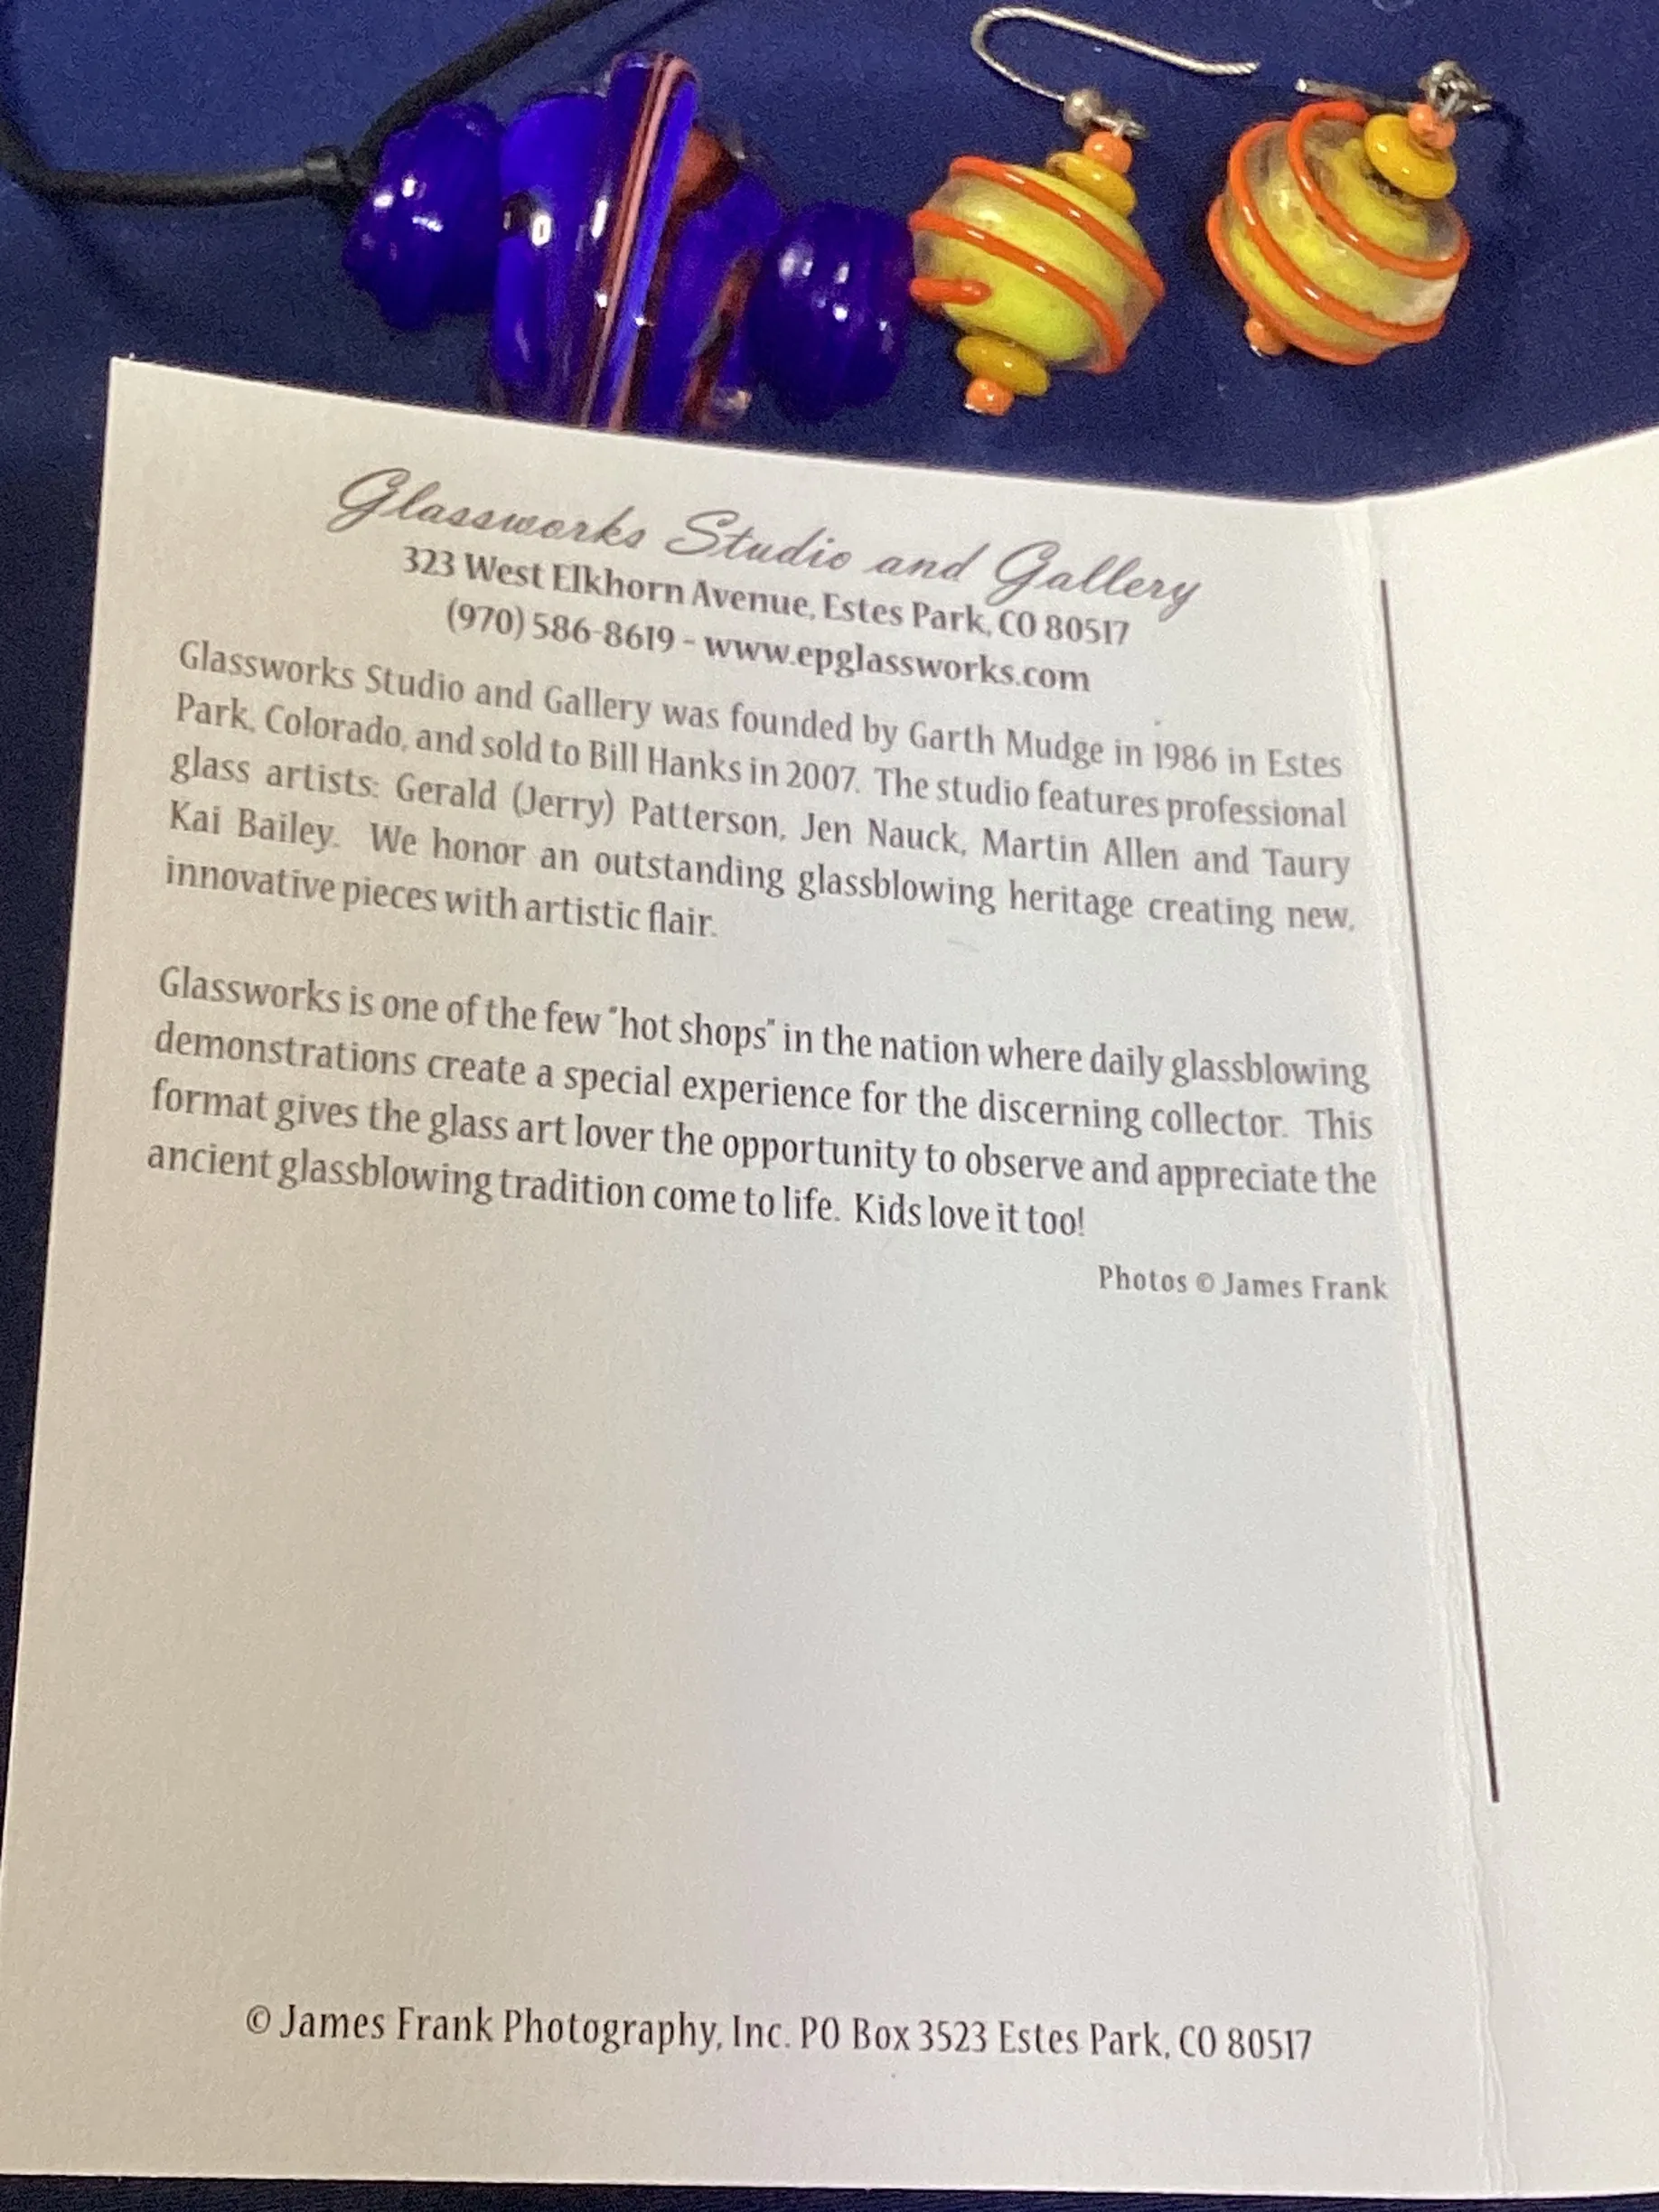 Glassworks Studio and Gallery
323 West Elkhorn Avenue, Estes Park, CO 80517
(970) 586-8619 - www.epglassworks.com
Glassworks Studio and Gallery was founded by Garth Mudge in 1986 in Estes
Park, Colorado, and sold to Bill Hanks in 2007. The studio features professional
glass artists: Gerald (Jerry) Patterson, Jen Nauck, Martin Allen and Taury
Kai Bailey. We honor an outstanding glassblowing heritage creating new,
innovative pieces with artistic flair.
Glassworks is one of the few "hot shops" in the nation where daily glassblowing
demonstrations create a special experience for the discerning collector. This
format gives the glass art lover the opportunity to observe and appreciate the
ancient glassblowing tradition come to life. Kids love it too!
Photos © James Frank
© James Frank Photography, Inc. PO Box 3523 Estes Park, CO 80517